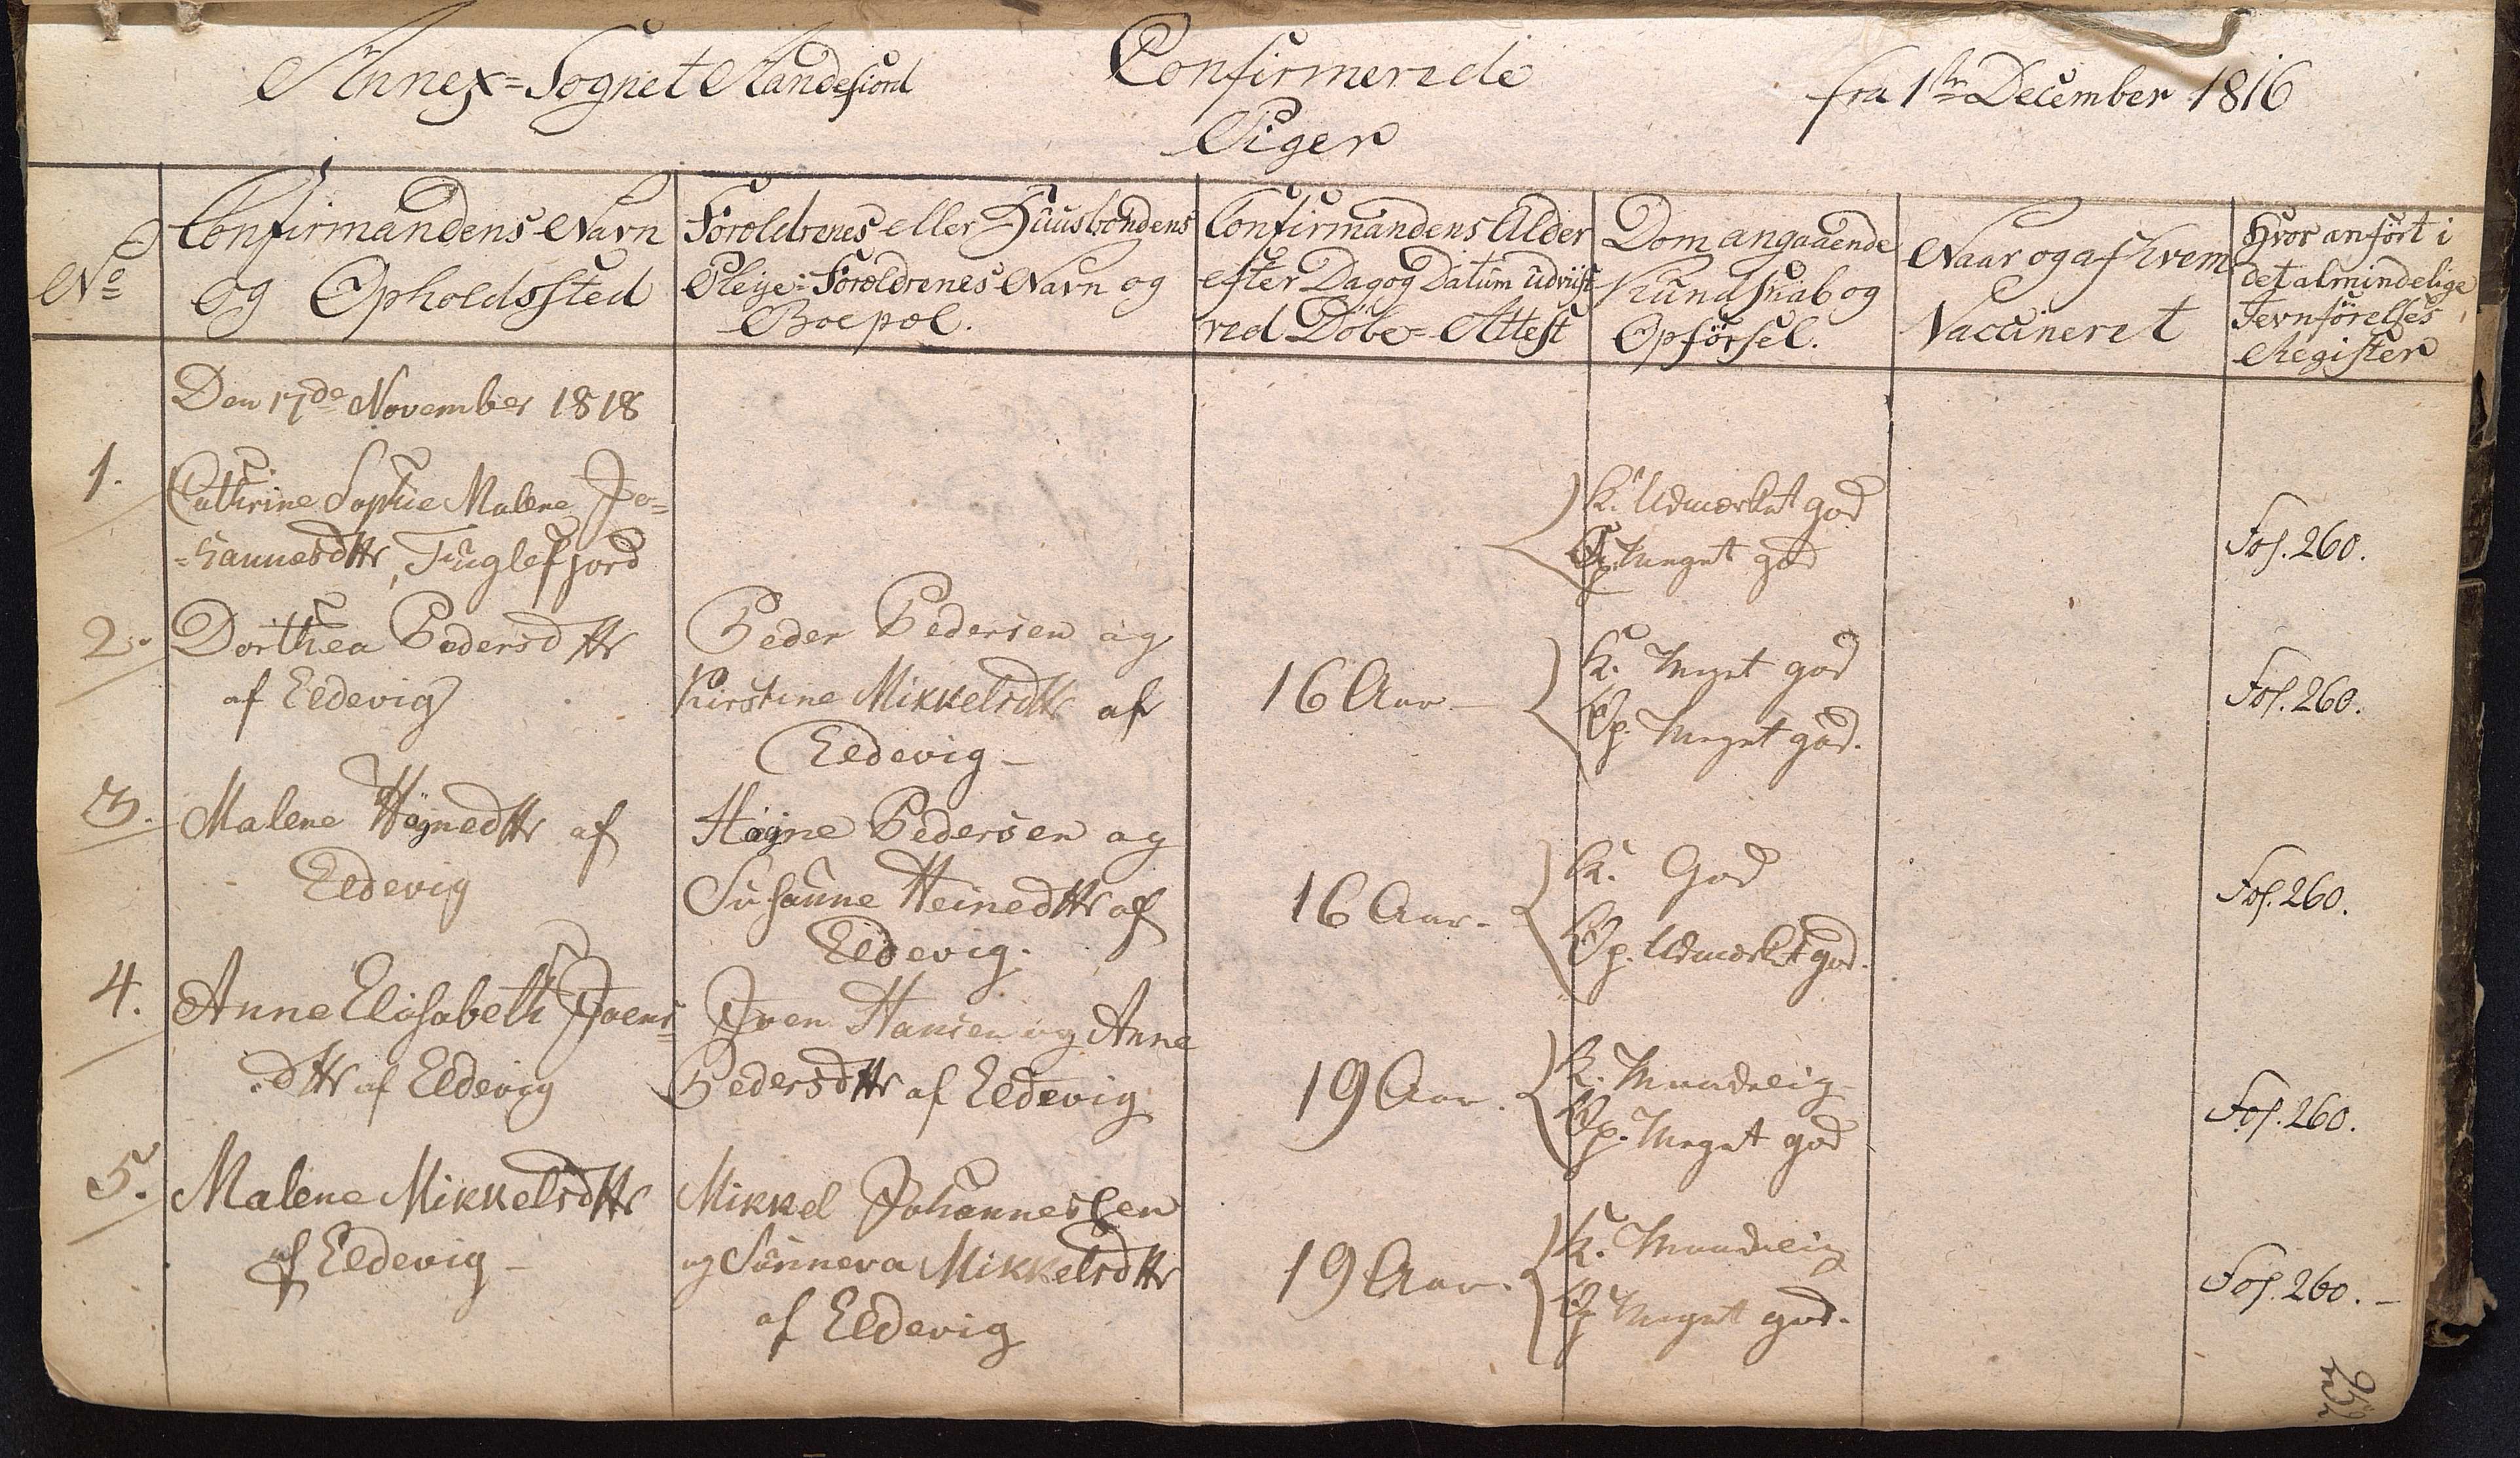 Annex=Sognet Andefiord
Confirmerede
Piger
fra 1ste December 1816
No
Confirmandens Navn
og Opholdssted
Forældrenes eller Huusbondens
Pleije=Forældrenes Navn og
Boepæl.
Confirmandens Alder
efter Dag og Datum udviist
ved Döbe=Attest
Dom angaaende
Kundskab og
Opförsel.
Naar og af hvem
Vaccineret
Hvor anfört i
det almindelige
Jevnförelses
Register
Den 17de November 1818
1.
Cathrine Sophie Malene Jo=
=hannesdttr, Fuglefjord
K. Udmærket god
Op. Meget god
Fol. 260.
2.
Dorthea Pedersdttr
af Eldevig
Peder Pedersen og
Kirstine Mikkelsdttr af
Eldevig
16 Aar
K. Meget god
Op. Meget god.
Fol. 260.
3.
Malene Högnedttr af
Eldevig
Högne Pedersen og
Susanne Heinedttr af
Eldevig.
16 Aar.
K. God
Op. Udmærket god.
Fol. 260.
4.
Anne Elisabeth Joens=
dttr af Eldevig
Joen Hansen og Anne
Pedersdttr af Eldevig
19 Aar.
K. Maadelig
Op. Meget god
Fol. 260.
5.
Malene Mikkelsdttr
af Eldevig
Mikkel Johannessen
og Sünneva Mikkelsdttr
af Eldevig
19 Aar.
K. Maadelig
Op Meget god.
Fol. 260.